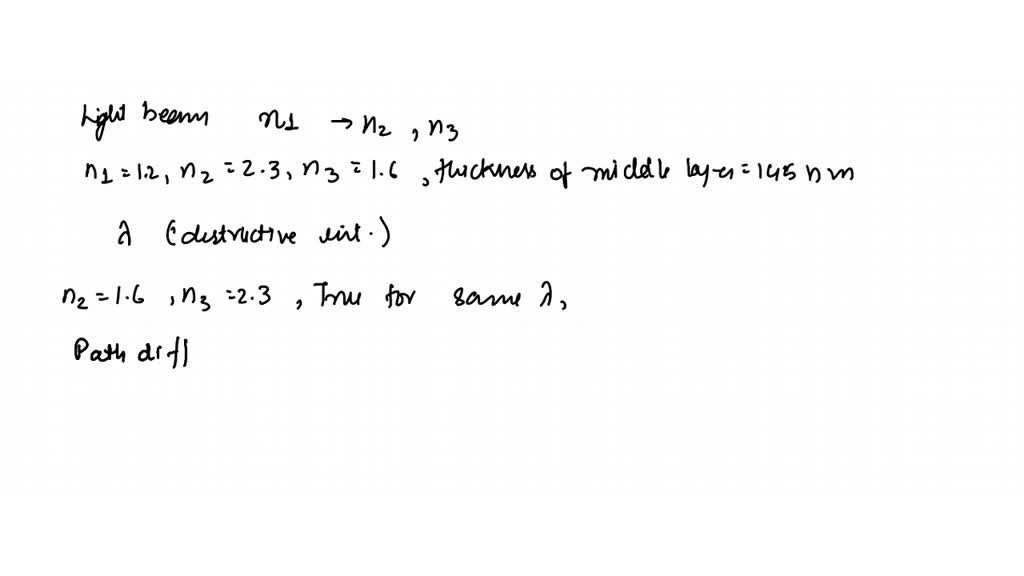 Light beam n1 → n2 , n3
n1 = 1.2, n2 = 2.3, n3 = 1.6 , thickness of middle layer = 145 nm
λ (destructive int.)
n2 = 1.6 , n3 = 2.3 , True for same λ,
Path diff